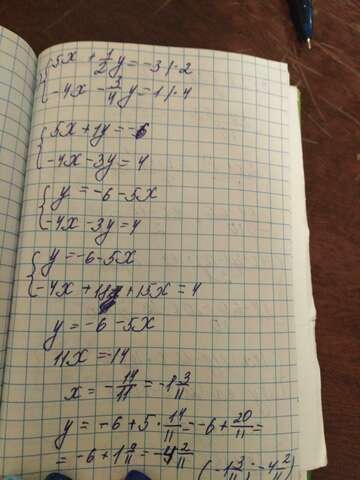 {5x + 1/2 y = -3 | · 2
{-4x - 3/4 y = 1 | · 4
{5x + 1y = -6
{-4x - 3y = 4
{y = -6 - 5x
{-4x - 3y = 4
{y = -6 - 5x
{-4x + 18 + 15x = 4
y = -6 - 5x
11x = -14
x = -14/11 = -1 3/11
y = -6 + 5 · 14/11 = -6 + 20/11 =
= -6 + 1 9/11 = -4 2/11 (-1 3/11; -4 2/11)